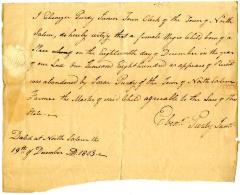 I Ebenezer Purdy Junior Town Clerk of the Town of North
Salem, do hereby certify that a female Negro Child being a
Slave on the Eighteenth day of December in the year
of our Lord one Thousand Eight hundred
was abandoned by Isaac Purdy of the Town of North Salem
Farmer the Master of said Child agreeable to the Law of this
State
Eben. Purdy Junr
Dated at North Salem the
19th of December AD 1803